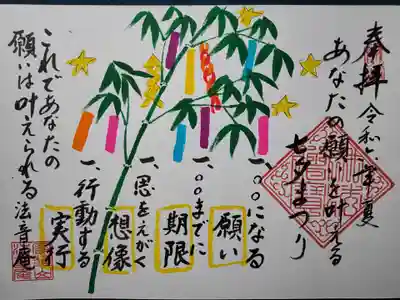 奉拝 令和八年夏
あなたの願いを叶える
七夕まつり
一、○○になる
願い
一、○○までに
期限
一、思をえがく
想像
一、行動する
実行
これであなたの
願いは叶えられる 法音庵